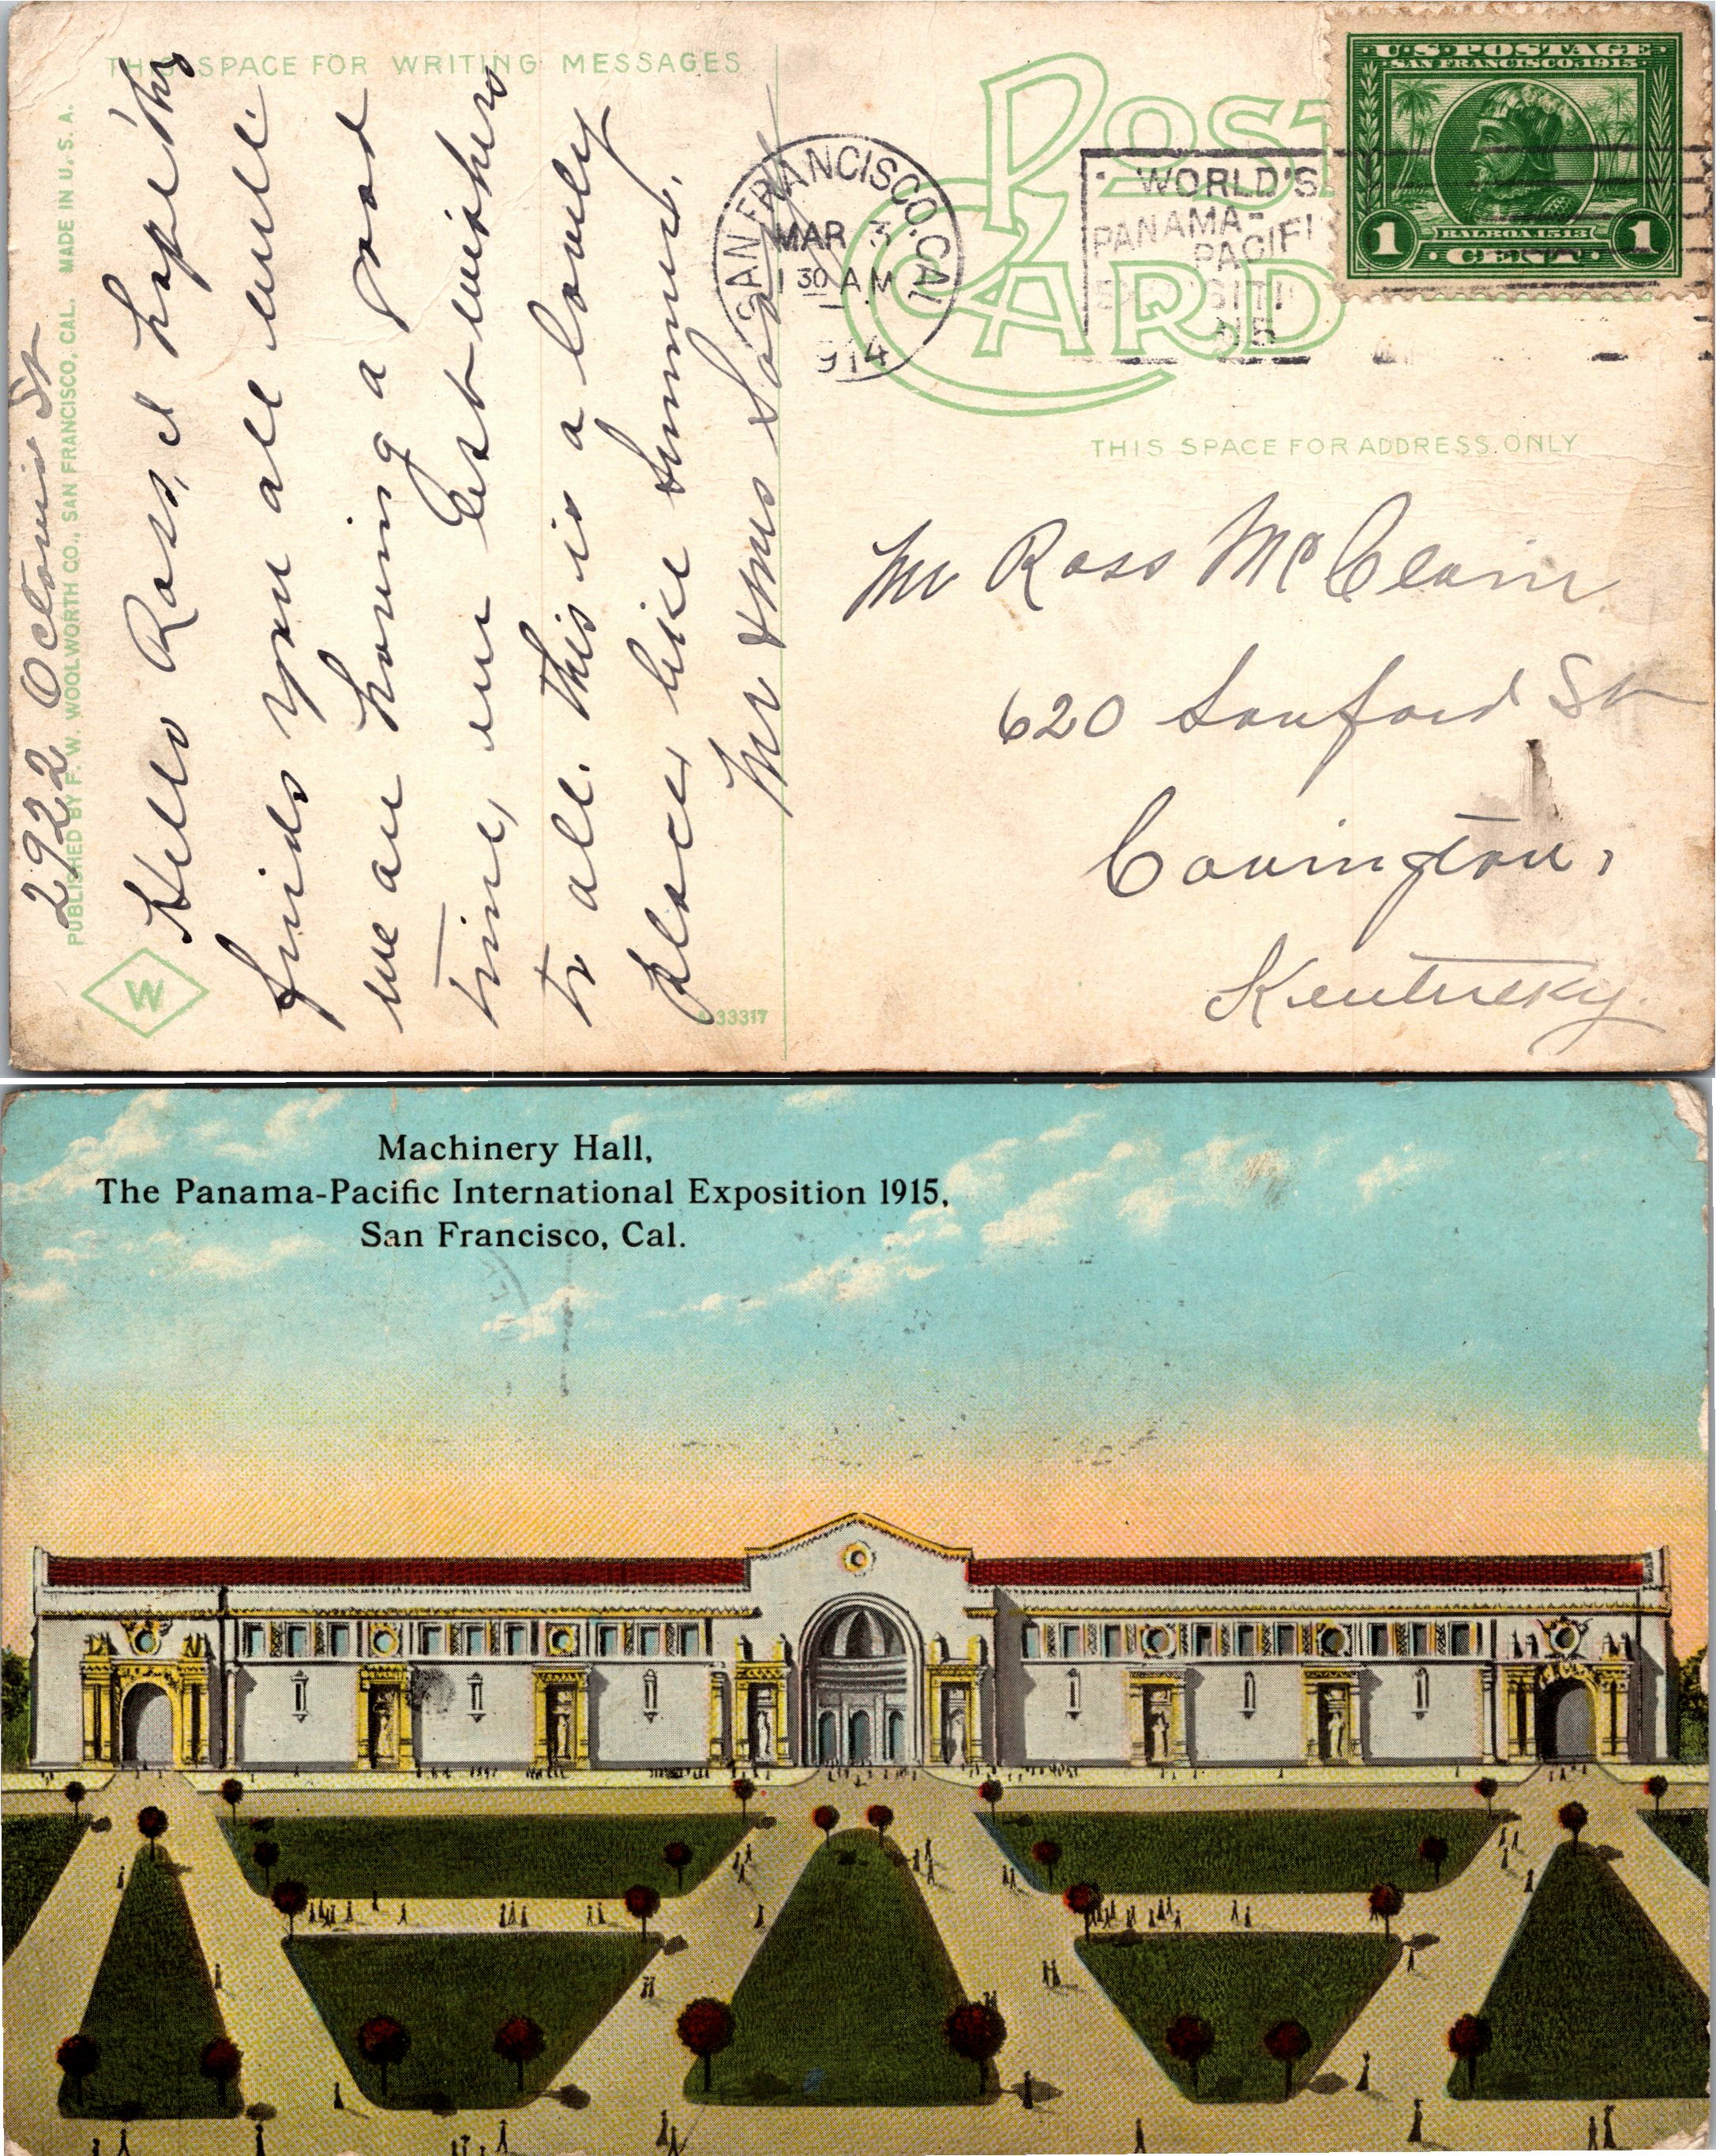 THIS SPACE FOR WRITING MESSAGES
POST
CARD
THIS SPACE FOR ADDRESS ONLY
U.S. POSTAGE
SAN FRANCISCO 1915
BALBOA 1513
1 CENT 1
SAN FRANCISCO, CAL.
MAR 3
1 30 A.M
1914
WORLD'S
PANAMA-
PACIFI
EXPOSITI
1915
2922 Octavia St
PUBLISHED BY F. W. WOOLWORTH CO., SAN FRANCISCO, CAL. MADE IN U. S. A.
W
Hello Ross, I hope this
finds you all well
we are having a good
time, our best wishes
to all. This is a lovely
place, like summer.
Mr & Mrs
33317
Mr Ross McClain
620 Sanford St
Covington,
Kentucky.
Machinery Hall,
The Panama-Pacific International Exposition 1915,
San Francisco, Cal.